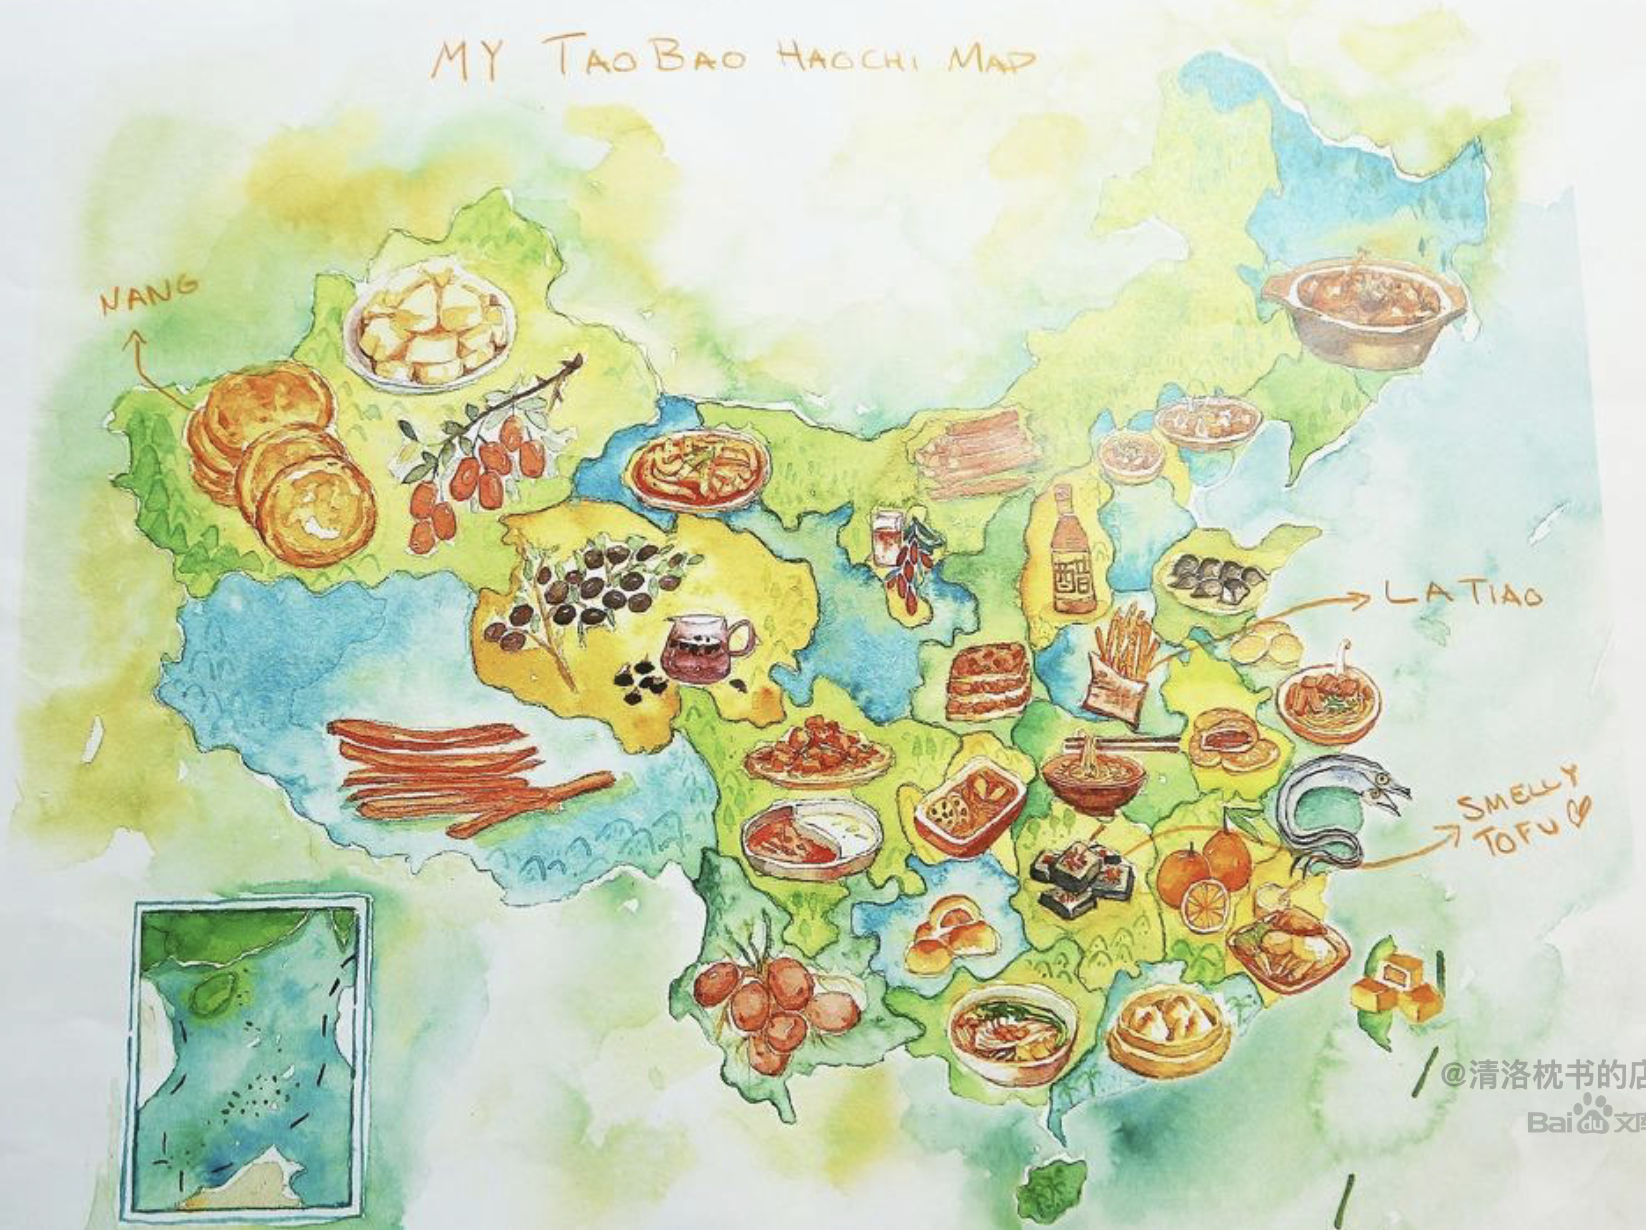 MY TAOBAO HAOCHI MAP
NANG
LA TIAO
醋
SMELLY
TOFU
@清洛枕书的店
Bai du 文库